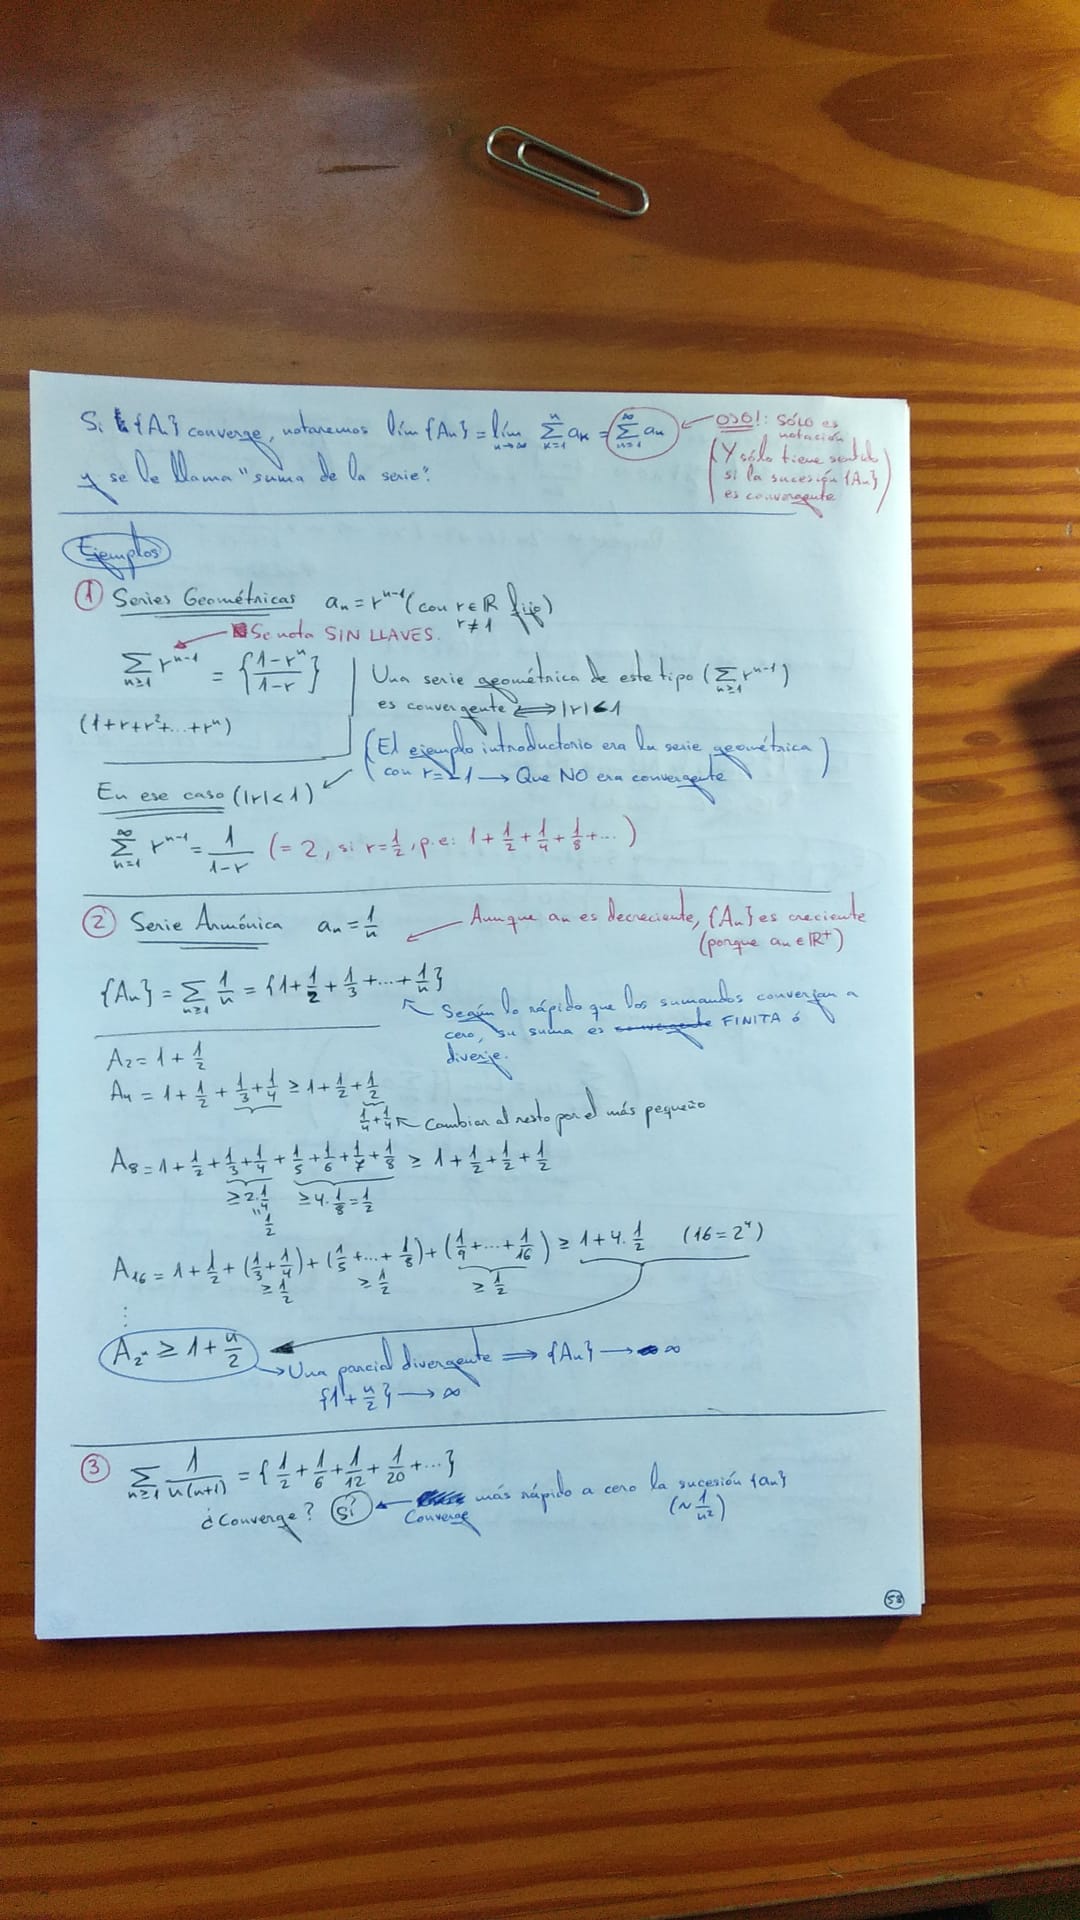 Si {An} converge, notaremos lím {An} = lím n→∞ ∑ k=1 n ak = ∑ n=1 ∞ an
y se le llama "suma de la serie".
OJO!: SÓLO es
notación
(Y sólo tiene sentido
si la sucesión {An}
es convergente)
Ejemplos
① Series Geométricas an = r^n-1 (con r ∈ ℝ fijo)
r ≠ 1
Se nota SIN LLAVES.
∑ n≥1 r^n-1 = {1-r^n / 1-r}
(1+r+r²+...+r^n)
Una serie geométrica de este tipo (∑ n≥1 r^n-1)
es convergente ⟺ |r|<1
(El ejemplo introductorio era la serie geométrica
con r=-1 → Que NO era convergente)
En ese caso (|r|<1)
∑ n=1 ∞ r^n-1 = 1/1-r (= 2, si r=1/2, p.e: 1+1/2+1/4+1/8+...)
② Serie Armónica an = 1/n
Aunque an es decreciente, {An} es creciente
(porque an ∈ ℝ+)
{An} = ∑ n≥1 1/n = {1+1/2+1/3+...+1/n}
Según lo rápido que los sumandos converjan a
cero, su suma es convergente FINITA ó
diverje.
A2 = 1+1/2
A4 = 1+1/2+1/3+1/4 ≥ 1+1/2+1/2
1/4+1/4 Cambiar al resto por el más pequeño
A8 = 1+1/2+1/3+1/4+1/5+1/6+1/7+1/8 ≥ 1+1/2+1/2+1/2
≥2·1/4 ≥4·1/8=1/2
"
1/2
A16 = 1+1/2+(1/3+1/4)+(1/5+...+1/8)+(1/9+...+1/16) ≥ 1+4·1/2 (16=2⁴)
≥1/2 ≥1/2 ≥1/2
⋮
A2^n ≥ 1+n/2
→ Una parcial divergente ⟹ {An} → ∞
{1+n/2} → ∞
③ ∑ n≥1 1/n(n+1) = {1/2+1/6+1/12+1/20+...}
¿Converge? SÍ
Converge más rápido a cero la sucesión {an}
(~1/n²)
58